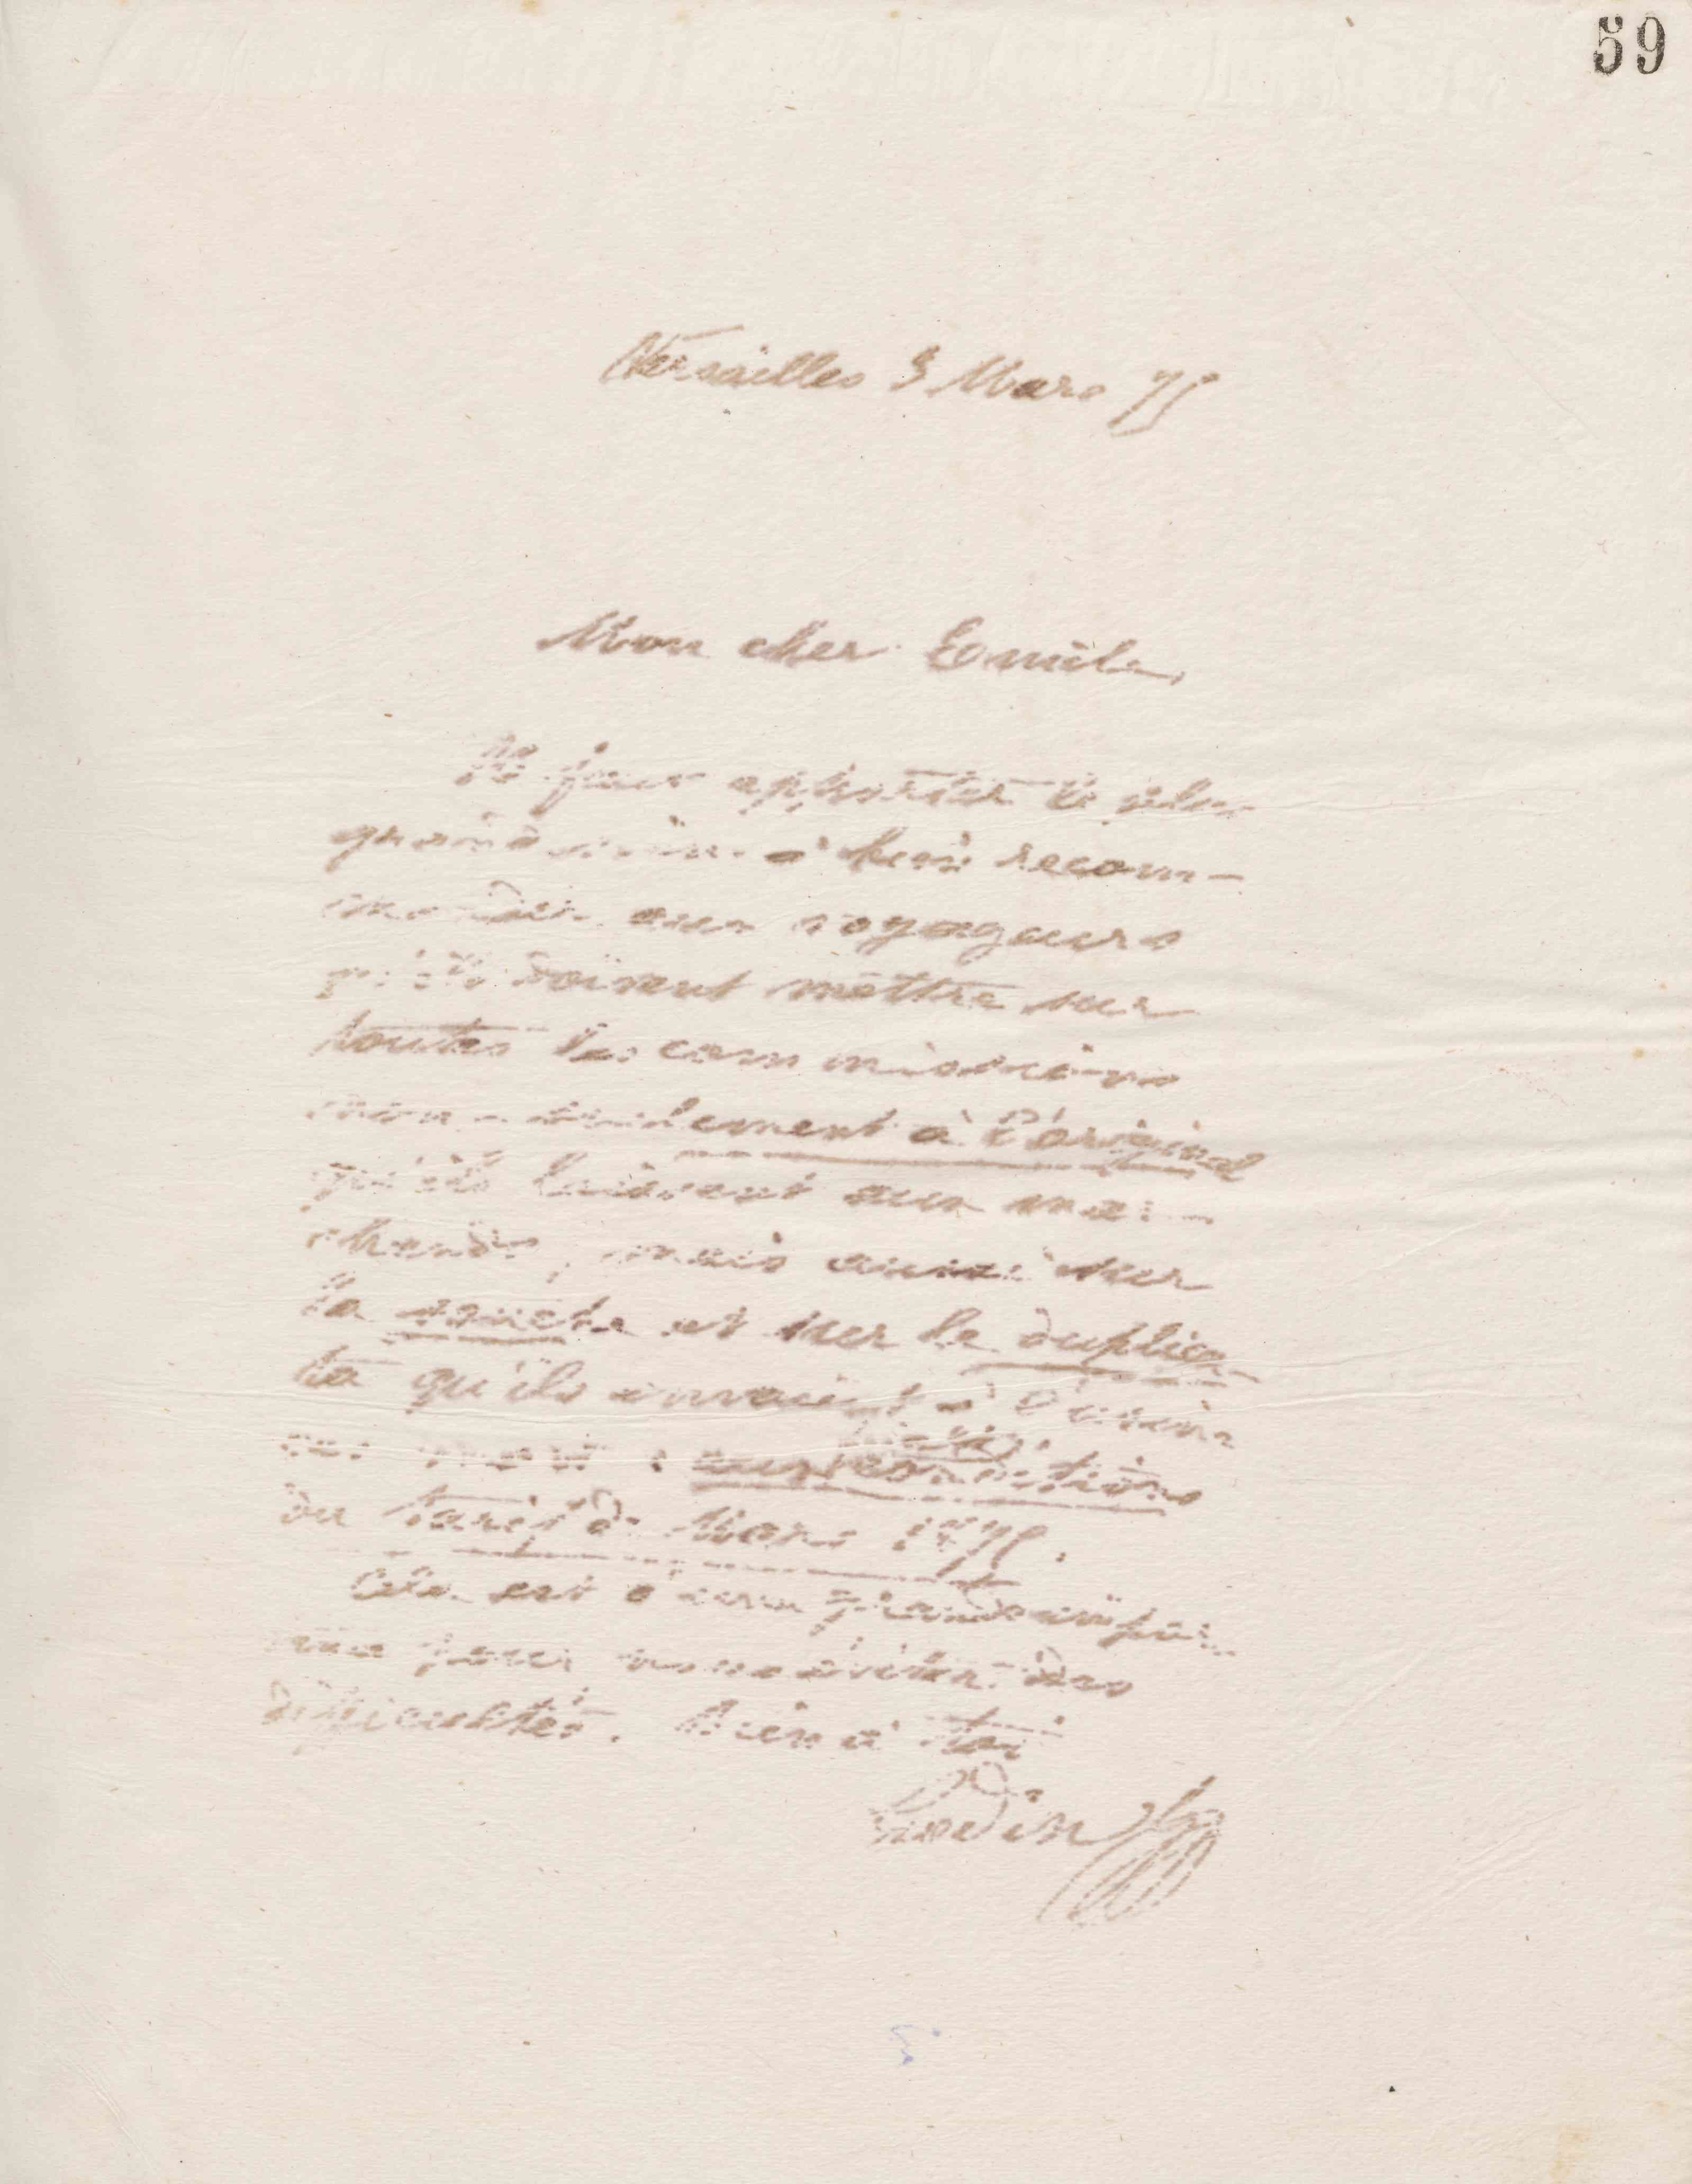 59
Versailles 3 Mars 75
Mon cher Emile,
Il faut apporter le plus
grand soin à bien recom-
mander aux voyageurs
qu'ils doivent mettre sur
toutes les commissions
non seulement à l'original
qu'ils laissent aux mar-
chands, mais aussi sur
la souche et sur le duplica-
ta qu'ils envoient à l'usine
les mots : aux conditions
du tarif de Mars 1875.
Cela est d'une grande impor-
tance pour nous éviter des
difficultés. Bien à toi
Godin